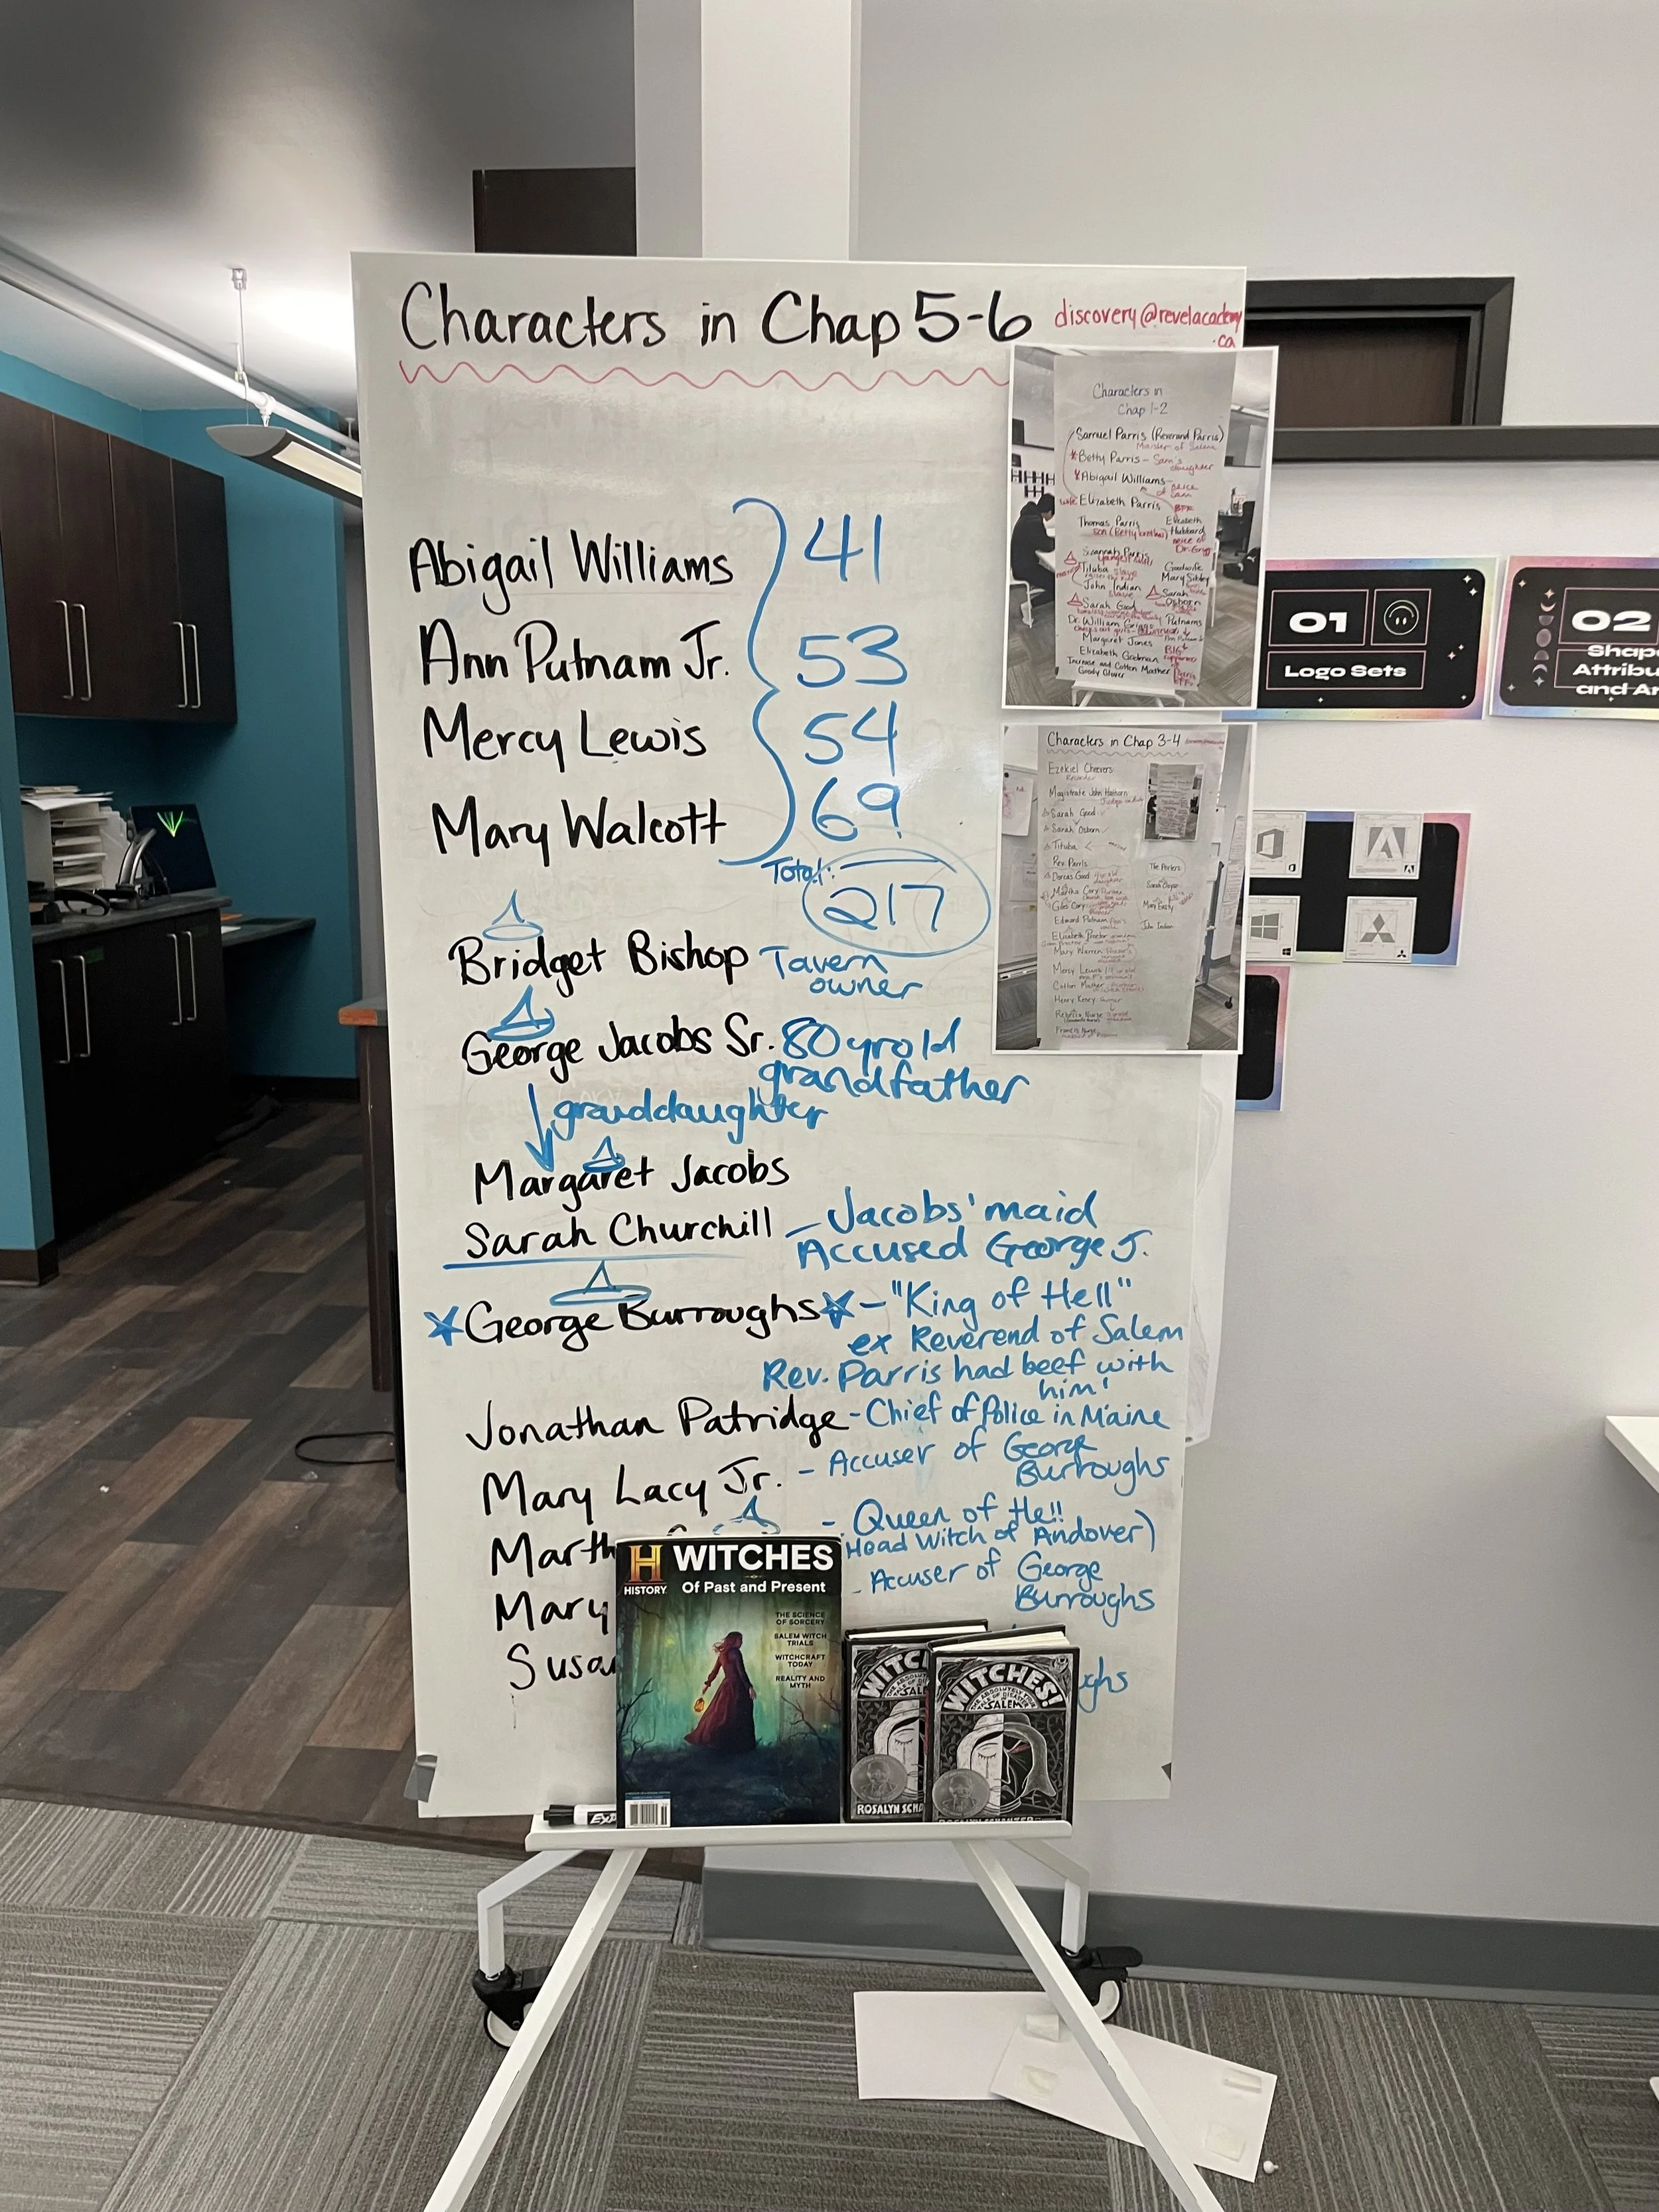 Characters in Chap 5-6
discovery@revelacademy
.ca
Abigail Williams 41
Ann Putnam Jr. 53
Mercy Lewis 54
Mary Walcott 69
Total: 217
Bridget Bishop Tavern
owner
George Jacobs Sr. 80 yr old
grandfather
granddaughter
Margaret Jacobs
Sarah Churchill - Jacobs' maid
Accused George J.
George Burroughs - "King of Hell"
ex Reverend of Salem
Rev. Parris had beef with
him!
Jonathan Patridge - Chief of Police in Maine
Mary Lacy Jr. - Accuser of George
Burroughs
- Queen of Hell
Head Witch of Andover)
- Accuser of George
Burroughs
Mary
H WITCHES
HISTORY Of Past and Present
THE SCIENCE
OF SORCERY
SALEM WITCH
TRIALS
WITCHCRAFT
TODAY
REALITY AND
MYTH
WITCHES!
SALEM
ROSALYN
Characters in
Chap 1-2
Samuel Parris (Reverand Parris)
Betty Parris - Sam's
daughter
Abigail Williams -
Elizabeth Parris
BFF
Thomas Parris
Elizabeth
Hubbard
niece of
Tituba
John Indian
slave
Goodwife
Mary Sibley
Sarah
Osborn
Sarah Good
Putnams
Margaret Jones
Increase and Cotton Mather
Goody Glover
Characters in Chap 3-4
Magistrate John
Sarah Good
Sarah Osborn
Tituba
Rev. Parris
Dorcas Good
Martha Cory
Giles Cory
Edward Putnam
Mary Warren
Mercy Lewis
Cotton Mather
John Indian
01
Logo Sets
02